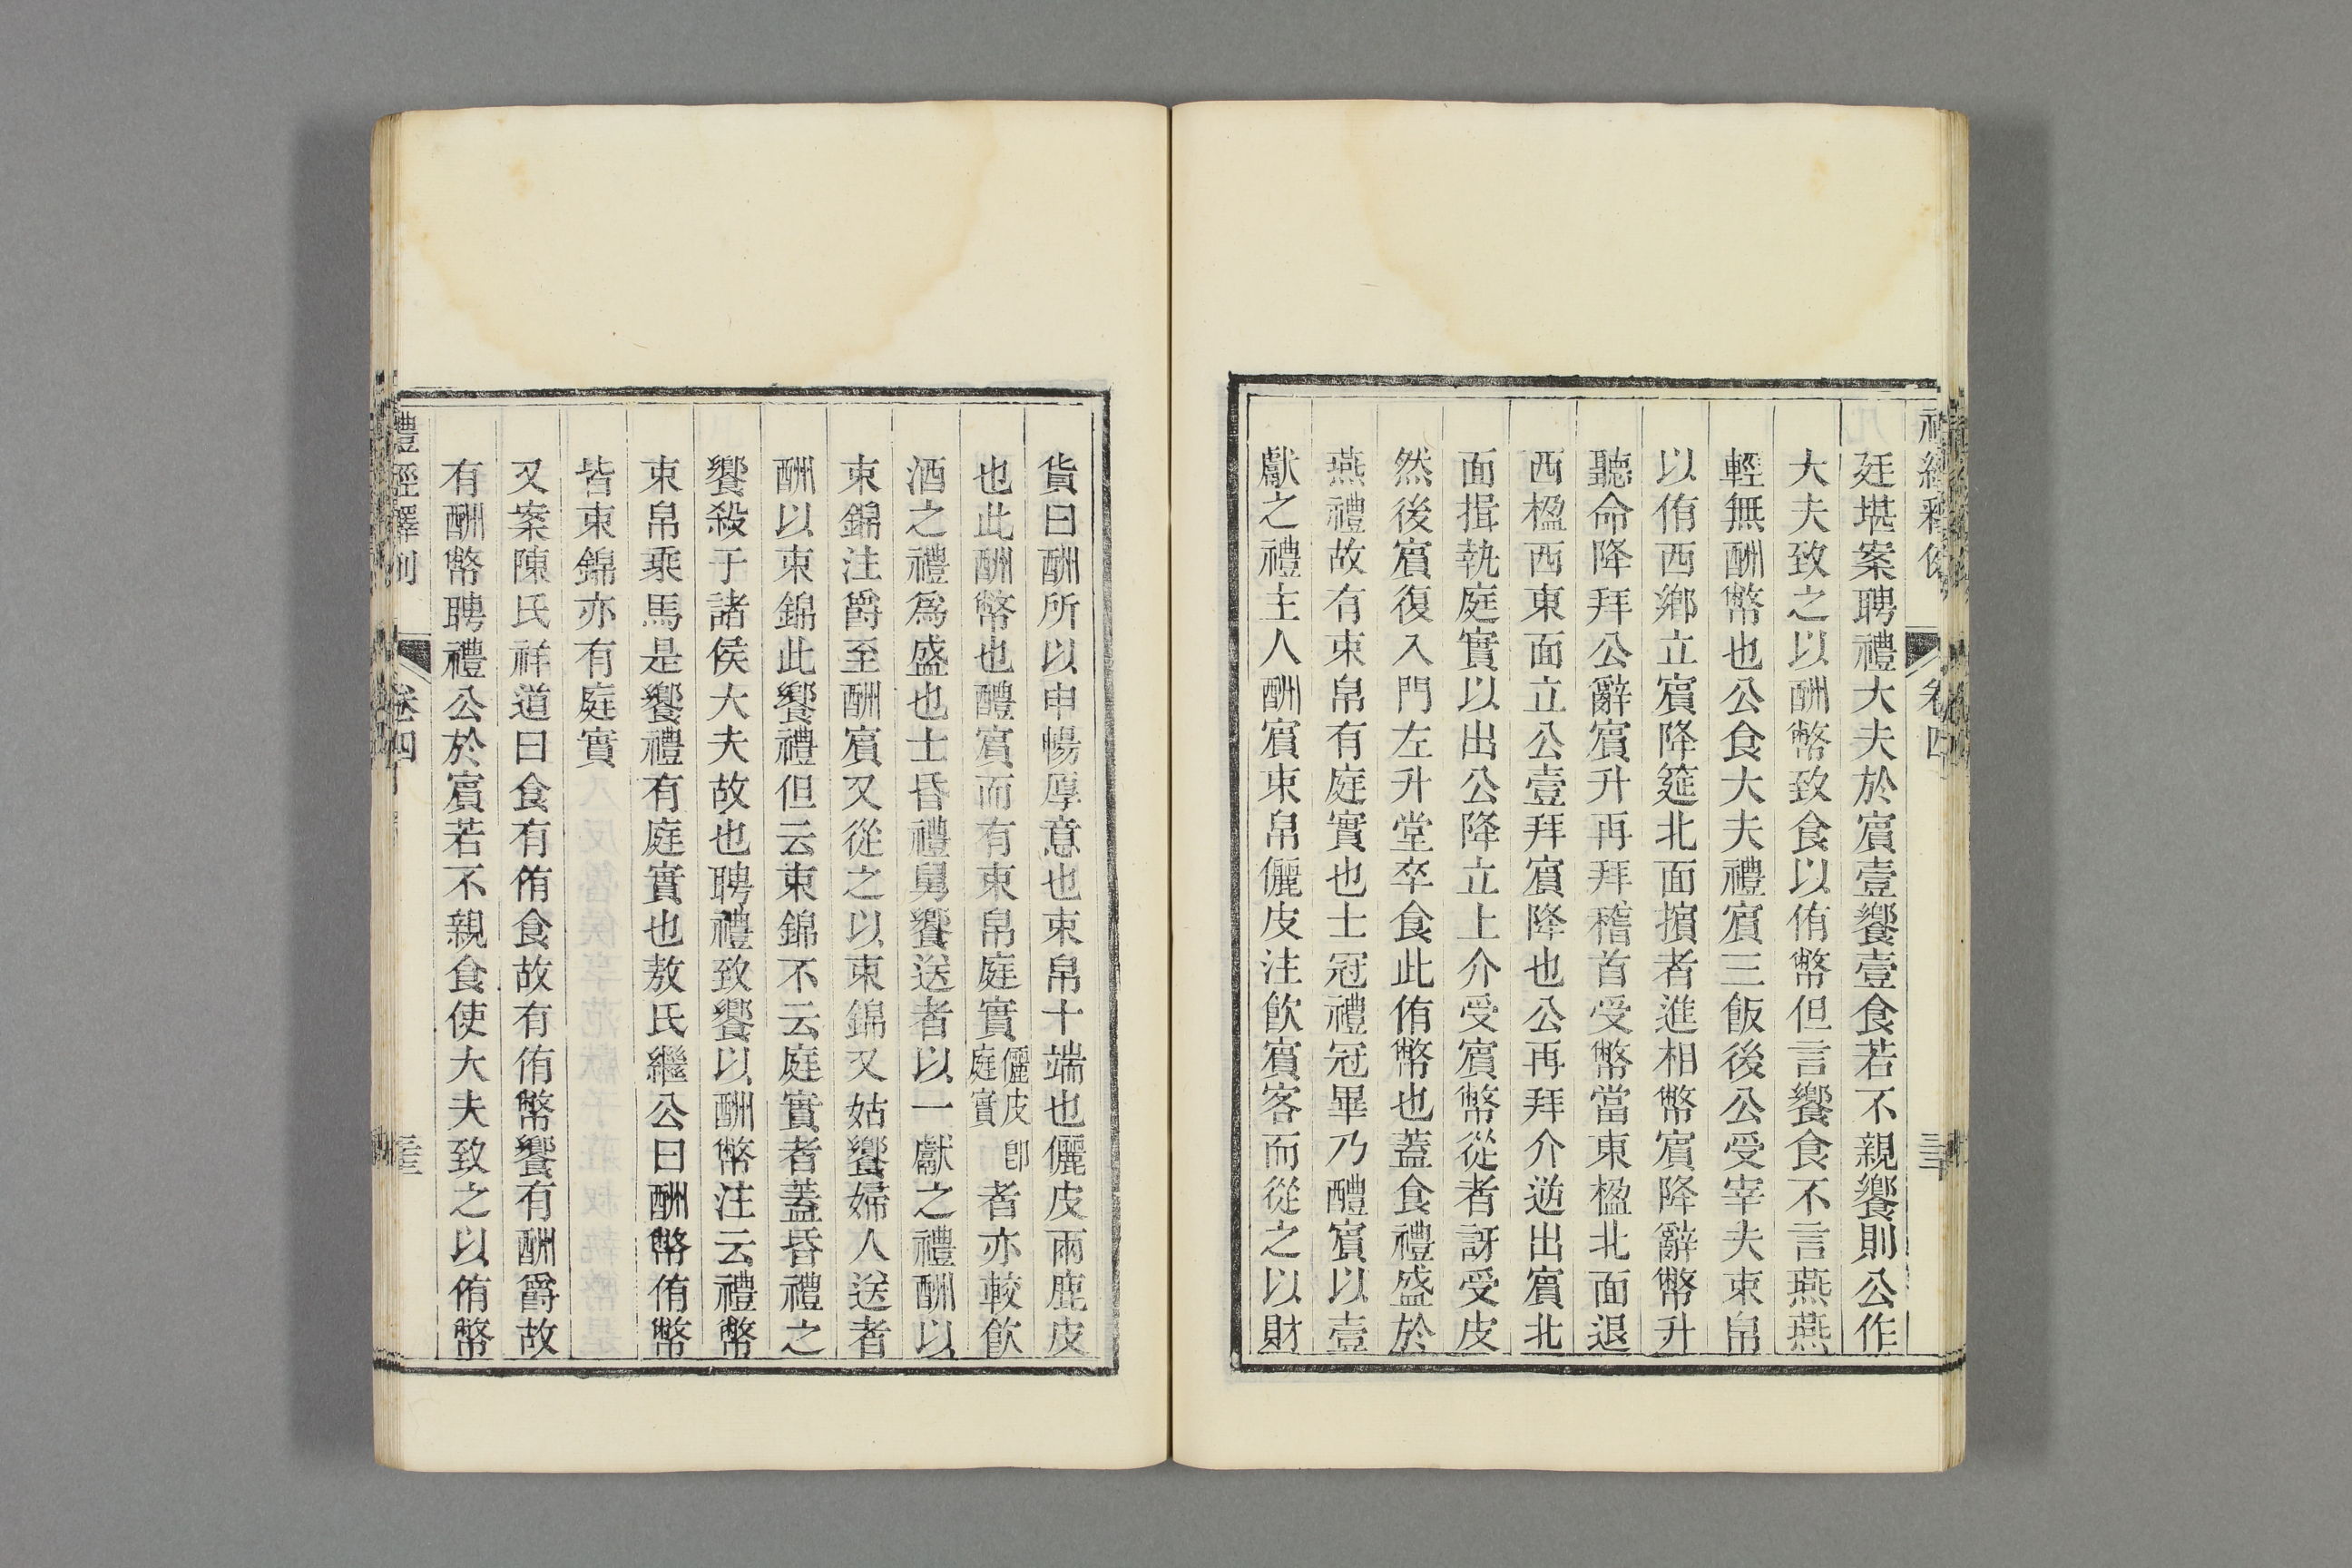 廷堪案聘禮大夫於賓壹饗壹食若不親饗則公作
大夫致之以酬幣致食以侑幣但言饗食不言燕燕
輕無酬幣也公食大夫禮賓三飯後公受宰夫束帛
以侑西鄉立賓降筵北面擯者進相幣賓降辭幣升
聽命降拜公辭賓升再拜稽首受幣當東楹北面退
西楹西東面立公壹拜賓降也公再拜介逆出賓北
面揖執庭實以出公降立上介受賓幣從者訝受皮
然後賓復入門左升堂卒食此侑幣也蓋食禮盛於
燕禮故有束帛有庭實也士冠禮冠畢乃醴賓以壹
獻之禮主人酬賓束帛儷皮注飲賓客而從之以財
貨曰酬所以申暢厚意也束帛十端也儷皮兩鹿皮
也此酬幣也醴賓而有束帛庭實儷皮卽庭實者亦較飲
酒之禮爲盛也士昏禮舅饗送者以一獻之禮酬以
束錦注爵至酬賓又從之以束錦又姑饗婦人送者
酬以束錦此饗禮但云束錦不云庭實者蓋昏禮之
饗殺于諸侯大夫故也聘禮致饗以酬幣注云禮幣
束帛乘馬是饗禮有庭實也敖氏繼公曰酬幣侑幣
皆束錦亦有庭實
又案陳氏祥道曰食有侑食故有侑幣饗有酬爵故
有酬幣聘禮公於賓若不親食使大夫致之以侑幣
禮經釋例
卷四